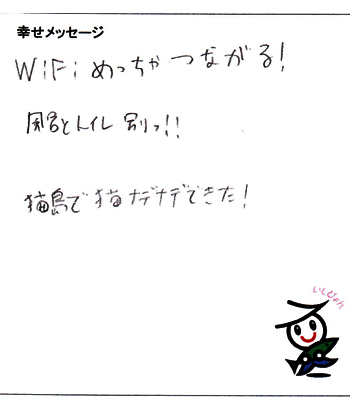 幸せメッセージ
WiFiめっちゃつながる!
風呂とトイレ別っ!!
猫島で猫ナデナデできた!
いしぴょん